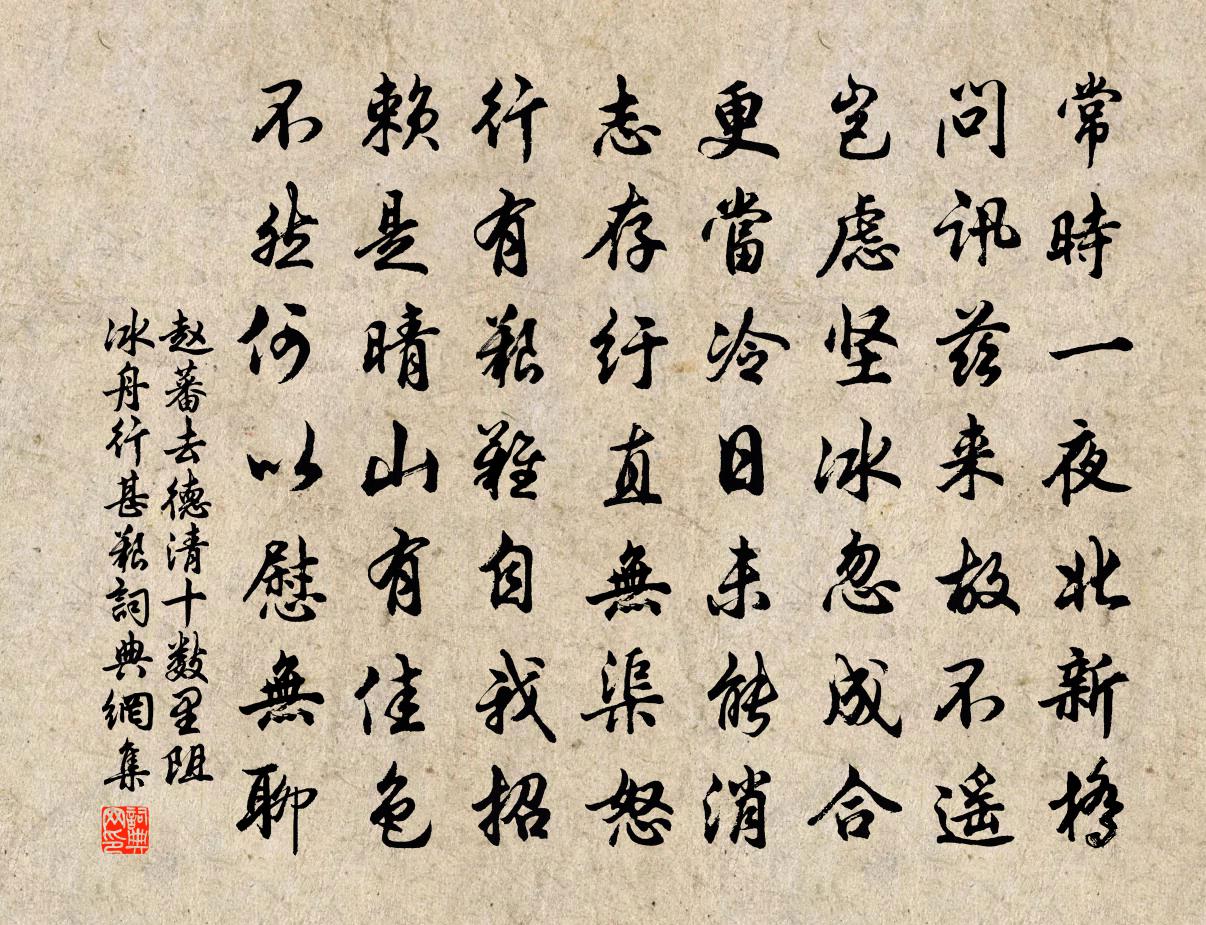 常時一夜北新橋
問訊茲来故不遥
岂慮坚冰忽成合
更當冷日未能消
志存纡直無渠怒
行有艱難自我招
赖是晴山有佳色
不然何以慰無聊
赵蕃去德清十数里阻
冰舟行甚艱詞典網集
詞典
网印